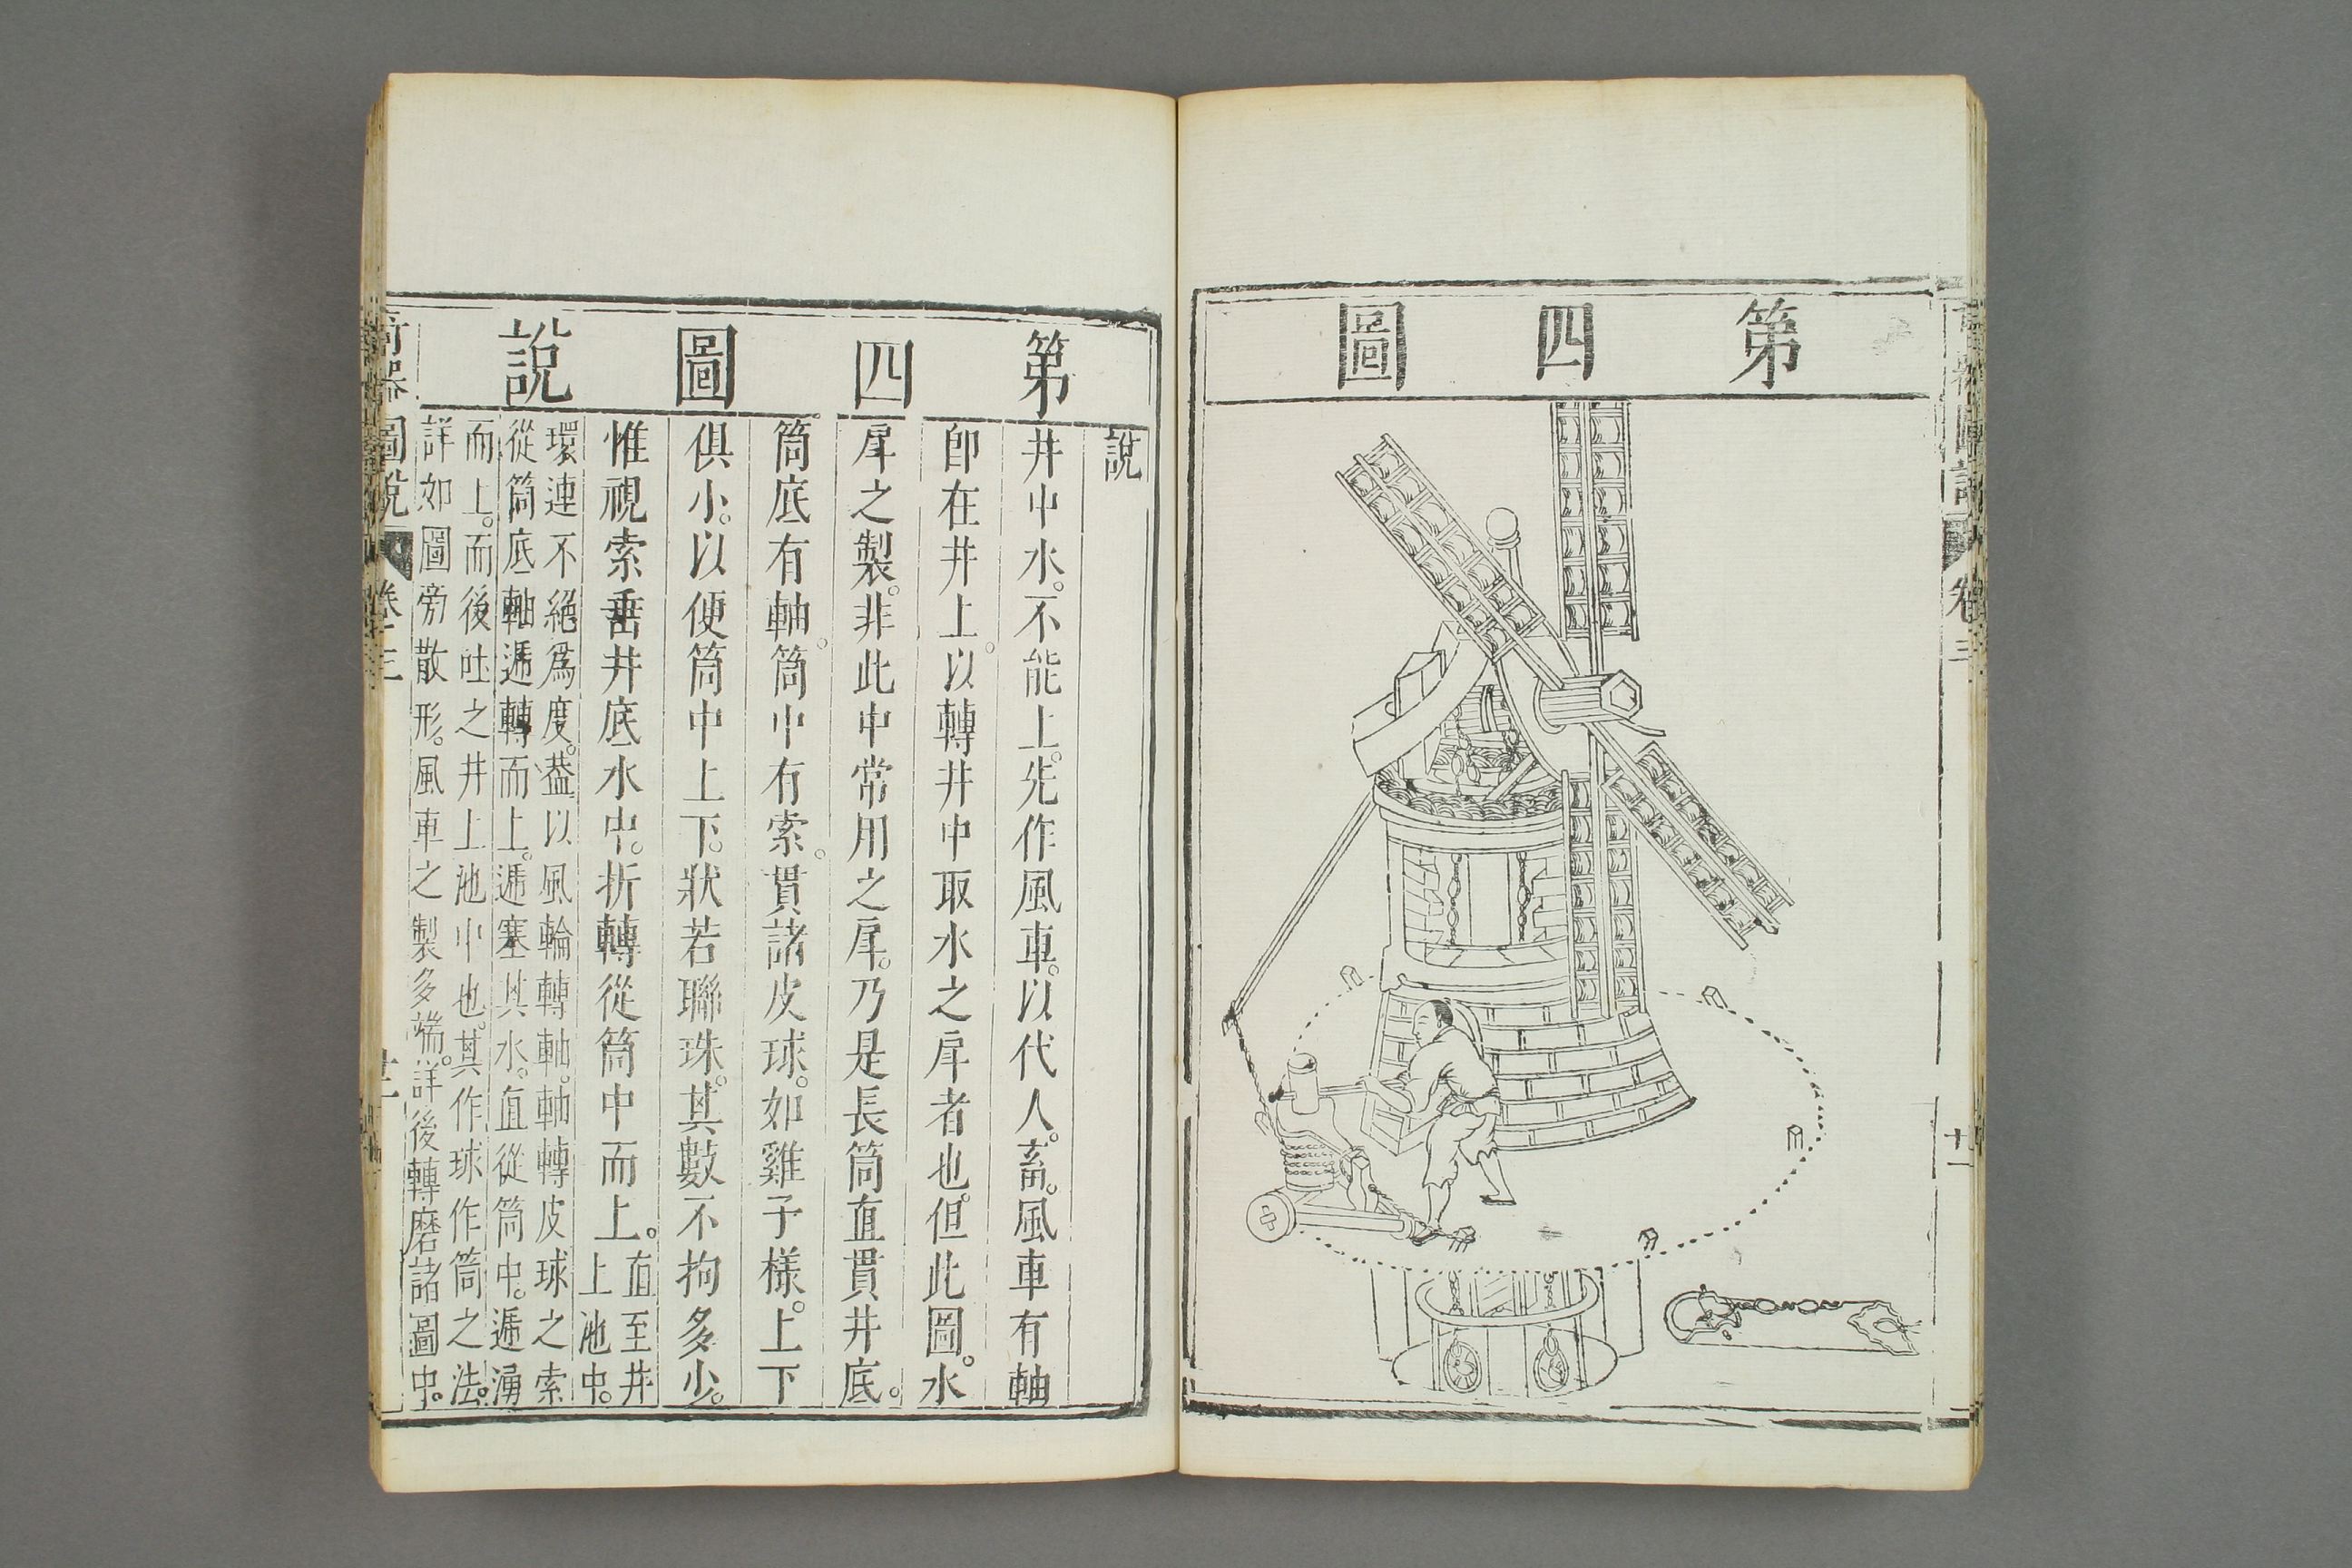 第四圖
卷三
第四圖說
說
井中水。不能上。先作風車。以代人。畜。風車有軸
卽在井上。以轉井中取水之戽者也。但此圖。水
戽之製。非此中常用之戽。乃是長筒直貫井底。
筒底有軸。筒中有索。貫諸皮球。如雞子樣。上下
俱小。以便筒中上下。狀若聯珠。其數不拘多少。
惟視索垂井底水中。折轉從筒中而上。直至井
上池中。
環連不絕爲度。葢以風輪轉軸。軸轉皮球之索
從筒底軸遞轉而上。遞塞其水。直從筒中。遞湧
而上。而後吐之井上池中也。其作球作筒之法。
詳如圖旁散形。風車之製多端。詳後轉磨諸圖中。
奇器圖說
卷三